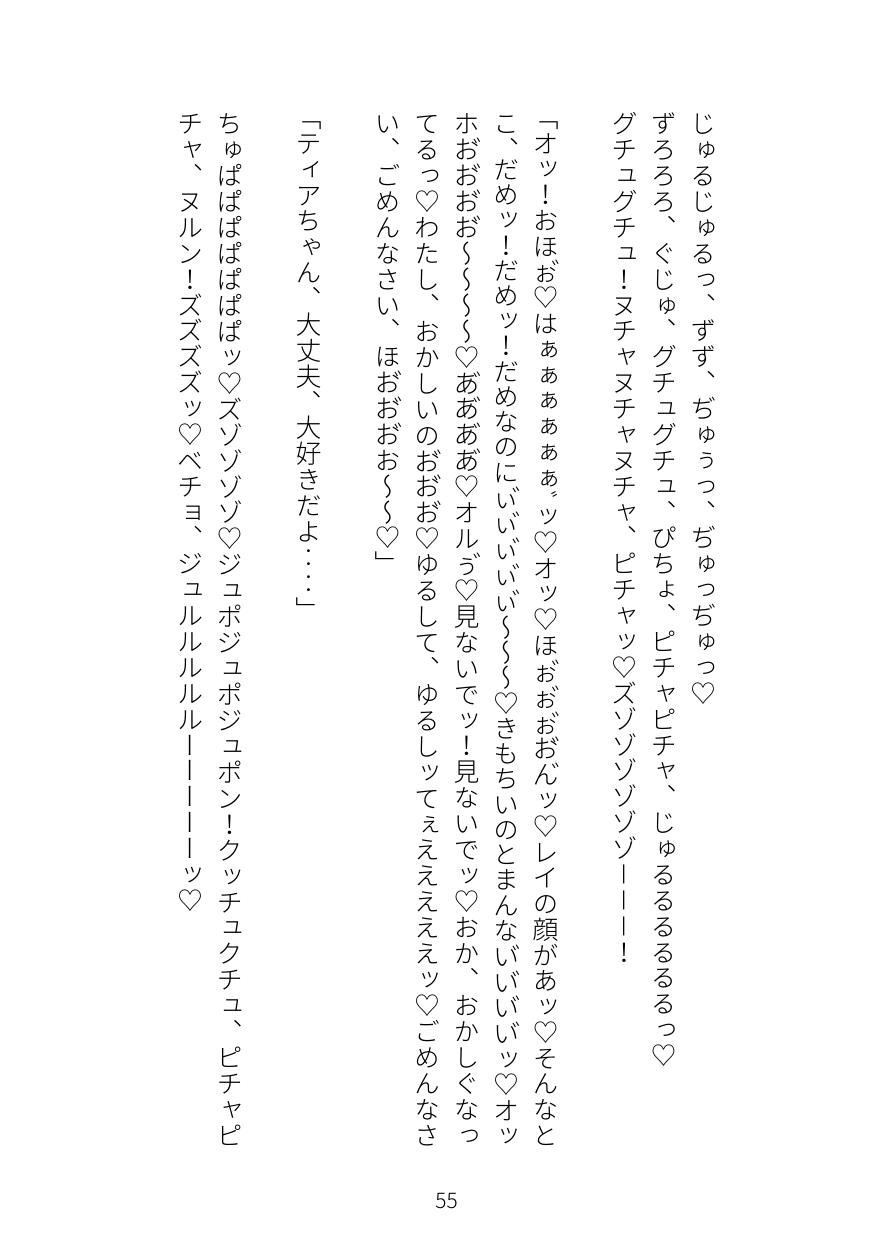 じゅるじゅるっ、ずず、ぢゅぅっ、ぢゅっぢゅっ♡
ずろろろ、ぐじゅ、グチュグチュ、ぴちょ、ピチャピチャ、じゅるるるるるるっ♡
グチュグチュ！ヌチャヌチャヌチャ、ピチャッ♡ズゾゾゾゾゾゾーーー！
「オッ！おほぉ♡はぁぁぁぁぁぁ゛ッ♡オッ♡ほぉ゛ぉ゛ぉ゛お゛ん゛ッ♡レイの顔があッ♡そんなと
こ、だめッ！だめッ！だめなのにぃ゛い゛い゛い゛い゛～～～♡きもちいのとまんない゛い゛い゛い゛ッ♡オッ
ホお゛お゛お゛お゛～～～～♡あ゛あ゛あ゛あ゛♡オルゔ♡見ないでッ！見ないでッ♡おか、おかしぐなっ
てるっ♡わたし、おかしいのお゛お゛お゛♡ゆるして、ゆるしッてぇえええええッ♡ごめんなさ
い、ごめんなさい、ほお゛お゛お゛お～～♡」
「ティアちゃん、大丈夫、大好きだよ‥‥」
ちゅぱぱぱぱぱぱぱッ♡ズゾゾゾゾ♡ジュポジュポジュポン！クッチュクチュ、ピチャピ
チャ、ヌルン！ズズズズッ♡ベチョ、ジュルルルルルーーーーーッ♡
55